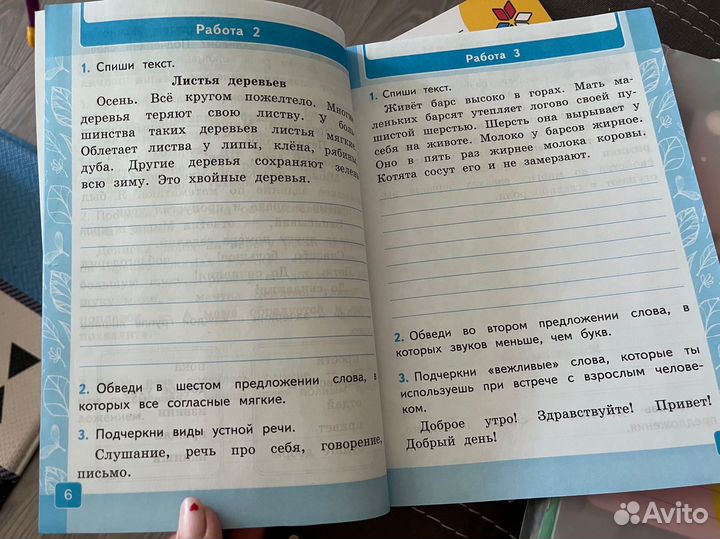 Работа 2
1. Спиши текст.
Листья деревьев
Осень. Всё кругом пожелтело. Многие
деревья теряют свою листву. У боль
шинства таких деревьев листья мягкие.
Облетает листва у липы, клёна, рябины,
дуба. Другие деревья сохраняют зелень
всю зиму. Это хвойные деревья.
2. Обведи в шестом предложении слова, в
которых все согласные мягкие.
3. Подчеркни виды устной речи.
Слушание, речь про себя, говорение,
письмо.
6
Работа 3
1. Спиши текст.
Живёт барс высоко в горах. Мать ма-
леньких барсят утепляет логово своей пу-
шистой шерстью. Шерсть она вырывает у
себя на животе. Молоко у барсов жирное.
Оно в пять раз жирнее молока коровы.
Котята сосут его и не замерзают.
2. Обведи во втором предложении слова, в
которых звуков меньше, чем букв.
3. Подчеркни «вежливые» слова, которые ты
используешь при встрече с взрослым челове-
ком.
Доброе утро! Здравствуйте! Привет!
Добрый день!
Avito